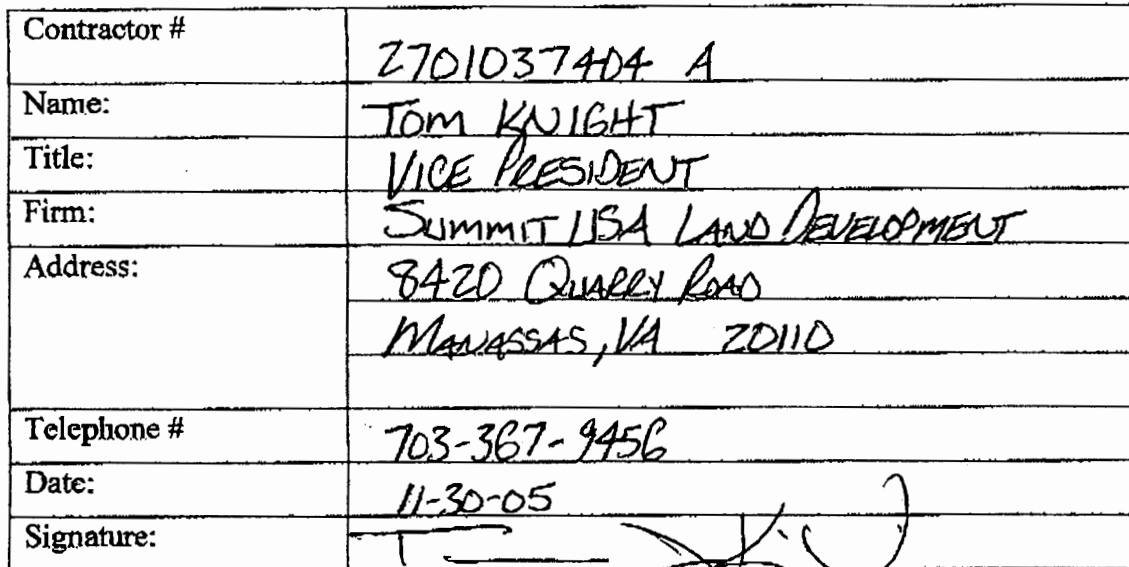 Contractor #
2701037404 A
Name:
TOM KNIGHT
Title:
VICE PRESIDENT
Firm:
SUMMIT USA LAND DEVELOPMENT
Address:
8420 QUARRY ROAD
MANASSAS, VA 20110
Telephone #
703-367-9456
Date:
11-30-05
Signature: